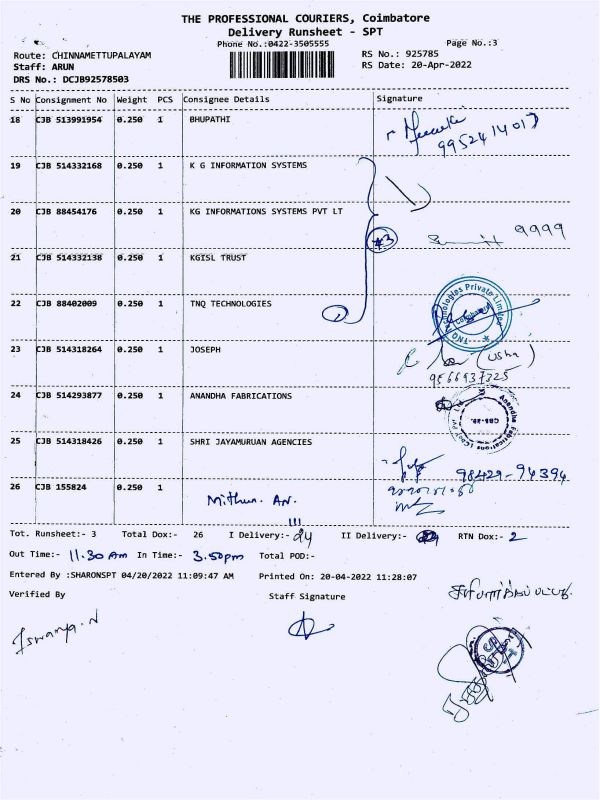 THE PROFESSIONAL COURIERS, Coimbatore
Delivery Runsheet - SPT
Phone No.:0422-3505555 Page No.:3
Route: CHINNAMETTUPALAYAM RS No.: 925785
Staff: ARUN RS Date: 20-Apr-2022
DRS No.: DCJB92578503
S No Consignment No Weight PCS Consignee Details Signature
18 CJB 513991954 0.250 1 BHUPATHI
9952414017
19 CJB 514332168 0.250 1 K G INFORMATION SYSTEMS
20 CJB 88454176 0.250 1 KG INFORMATIONS SYSTEMS PVT LT
#3 9999
21 CJB 514332138 0.250 1 KGISL TRUST
22 CJB 88402009 0.250 1 TNQ TECHNOLOGIES
TNQ Technologies Private Limited
Coimbatore
23 CJB 514318264 0.250 1 JOSEPH
(Usha)
9566937325
24 CJB 514293877 0.250 1 ANANDHA FABRICATIONS
Anandha Fabrications
CBE-29.
25 CJB 514318426 0.250 1 SHRI JAYAMURUAN AGENCIES
98429-94394
26 CJB 155824 0.250 1
Mithun. AN.
Tot. Runsheet:- 3 Total Dox:- 26 I Delivery:- 24 II Delivery:- RTN Dox:- 2
Out Time:- 11.30 Am In Time:- 3.50pm Total POD:-
Entered By :SHARONSPT 04/20/2022 11:09:47 AM Printed On: 20-04-2022 11:28:07
Verified By Staff Signature
Iswarya.N